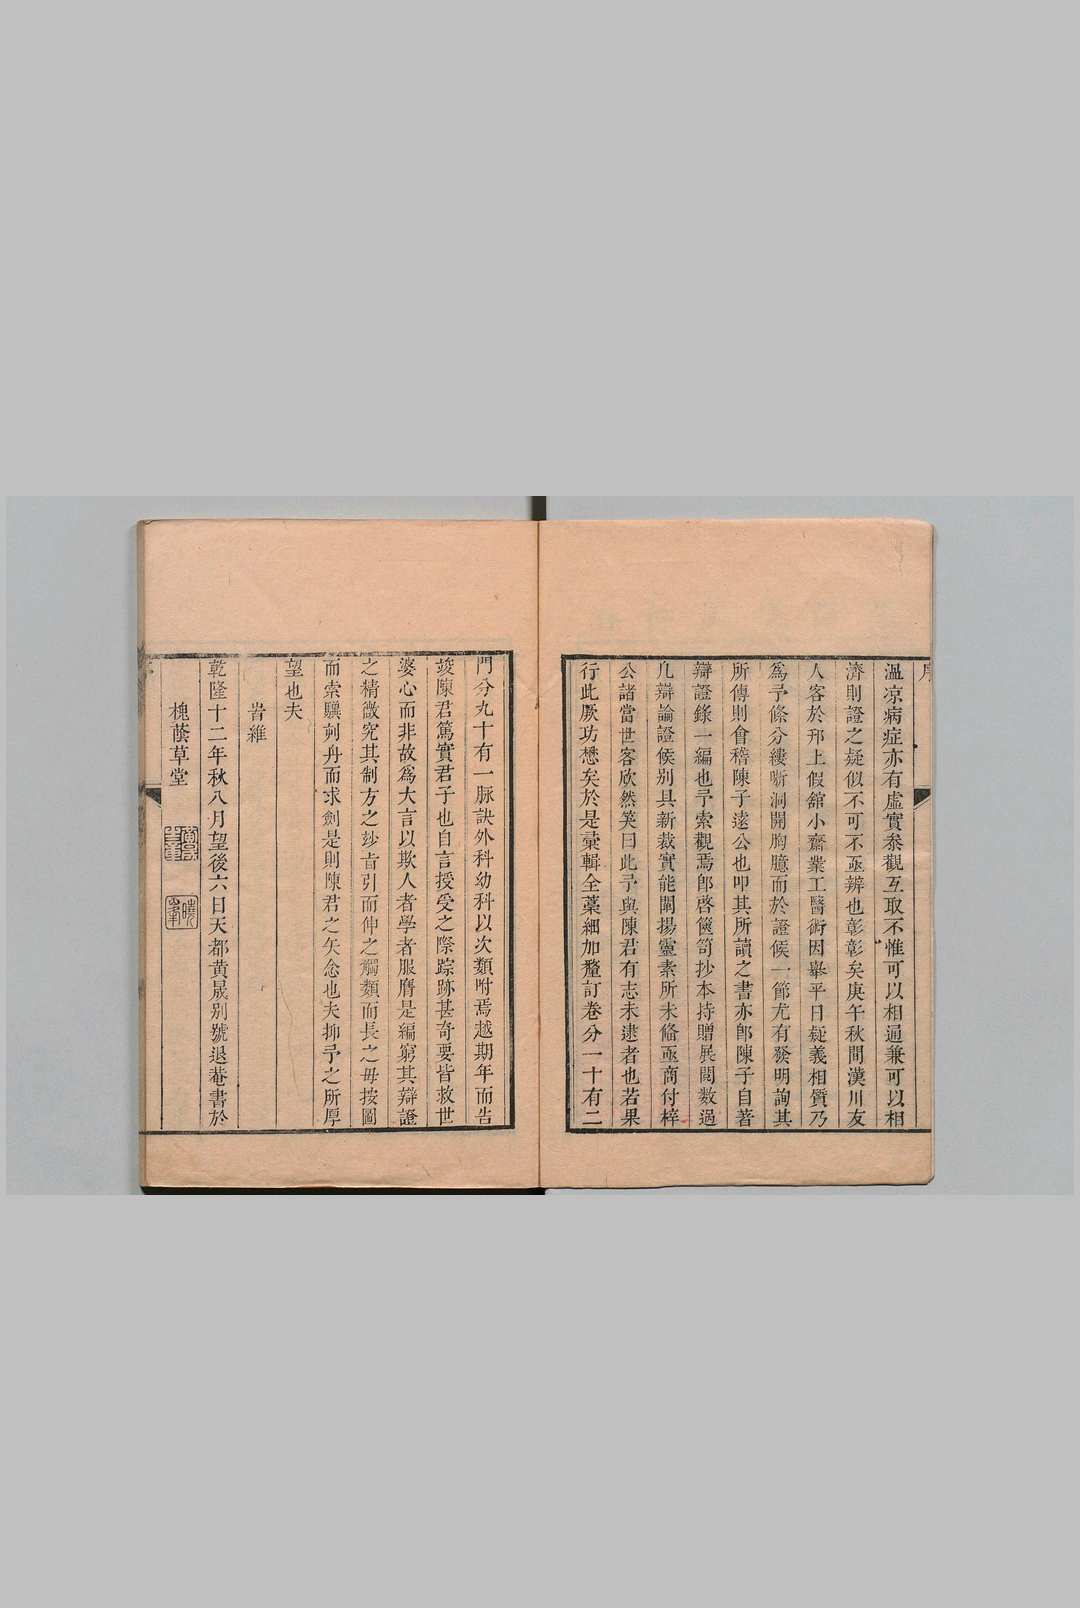 序
溫凉病症亦有虛實叅觀互取不惟可以相通兼可以相
濟則證之疑似不可不亟辨也彰彰矣庚午秋間漢川友
人客於邗上假舘小齋業工醫術因舉平日疑義相質乃
爲予條分縷晰洞開胸臆而於證候一節尤有發明詢其
所傳則會稽陳子遠公也叩其所讀之書亦卽陳子自著
辯證錄一編也予索觀焉卽啓篋笥抄本持贈展閱數過
凡辯論證候別具新裁實能闡揚靈素所未備亟商付梓
公諸當世客欣然笑曰此予與陳君有志未逮者也若果
行此厥功懋矣於是彙輯全藁細加釐訂卷分一十有二
門分九十有一脉訣外科幼科以次類附焉越期年而告
竣陳君篤實君子也自言授受之際踪跡甚奇要皆救世
婆心而非故爲大言以欺人者學者服膺是編窮其辯證
之精微究其制方之玅旨引而伸之觸類而長之毋按圖
而索驥刻舟而求劍是則陳君之矢念也夫抑予之所厚
望也夫
旹維
乾隆十二年秋八月望後六日天都黄晟別號退菴書於
槐蔭草堂
曉峯